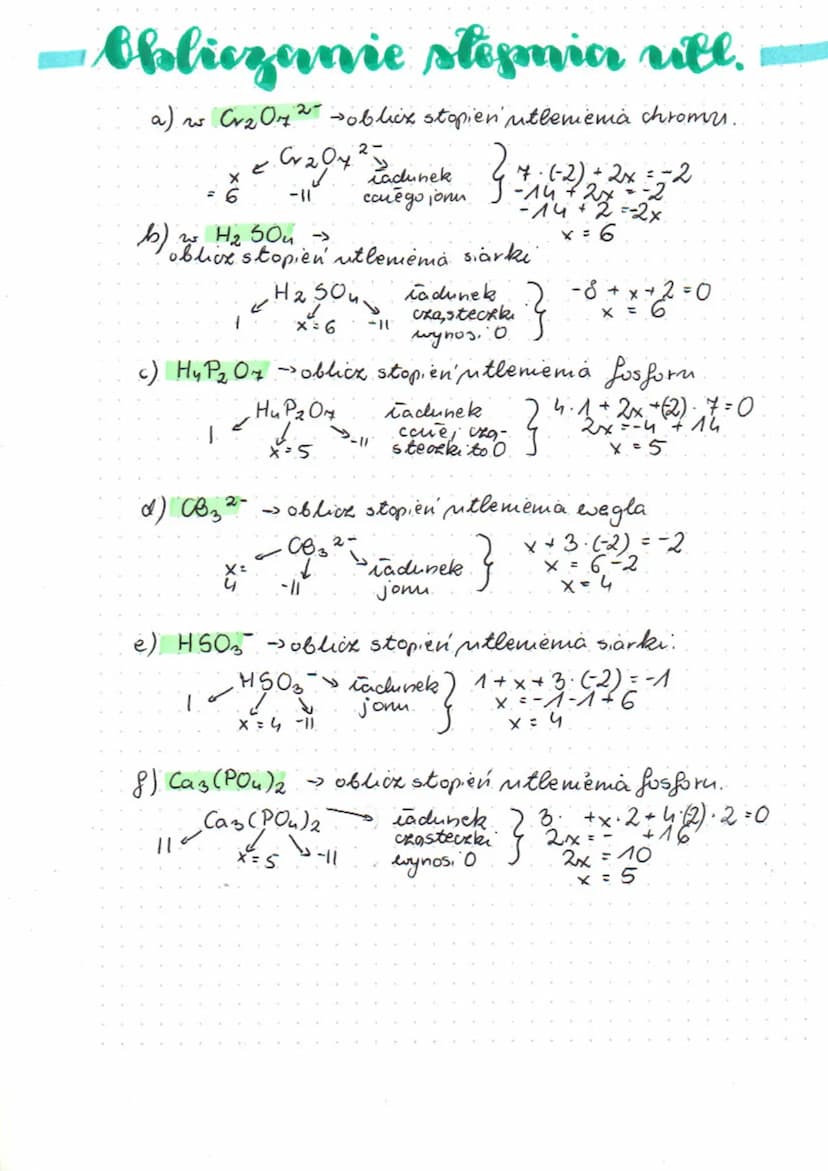 Obliczanie stopnia utl.
a) w Cr₂O₇²⁻ → oblicz stopień utlenienia chromu.
Cr₂O₇²⁻
x = 6
-II
ładunek
całego jonu
7·(-2) + 2x = -2
-14 + 2x = -2
-14 + 2 = -2x
x = 6
b) w H₂SO₄ →
oblicz stopień utlenienia siarki
H₂SO₄
I
x = 6
-II
ładunek
cząsteczki
wynosi 0
-8 + x + 2 = 0
x = 6
c) H₄P₂O₇ → oblicz stopień utlenienia fosforu
H₄P₂O₇
I
x = 5
-II
ładunek
całej czą-
steczki to 0
4·1 + 2x + (-2)·7 = 0
2x = -4 + 14
x = 5
d) CO₃²⁻ → oblicz stopień utlenienia węgla
CO₃²⁻
x =
4
-II
ładunek
jonu
x + 3·(-2) = -2
x = 6 - 2
x = 4
e) HSO₃⁻ → oblicz stopień utlenienia siarki.
HSO₃⁻
I
x = 4
-II
ładunek
jonu
1 + x + 3·(-2) = -1
x = -1 - 1 + 6
x = 4
f) Ca₃(PO₄)₂ → oblicz stopień utlenienia fosforu.
Ca₃(PO₄)₂
II
x = 5
-II
ładunek
cząsteczki
wynosi 0
3· + x·2 + 4·(2)·2 = 0
2x = - + 16
2x = 10
x = 5